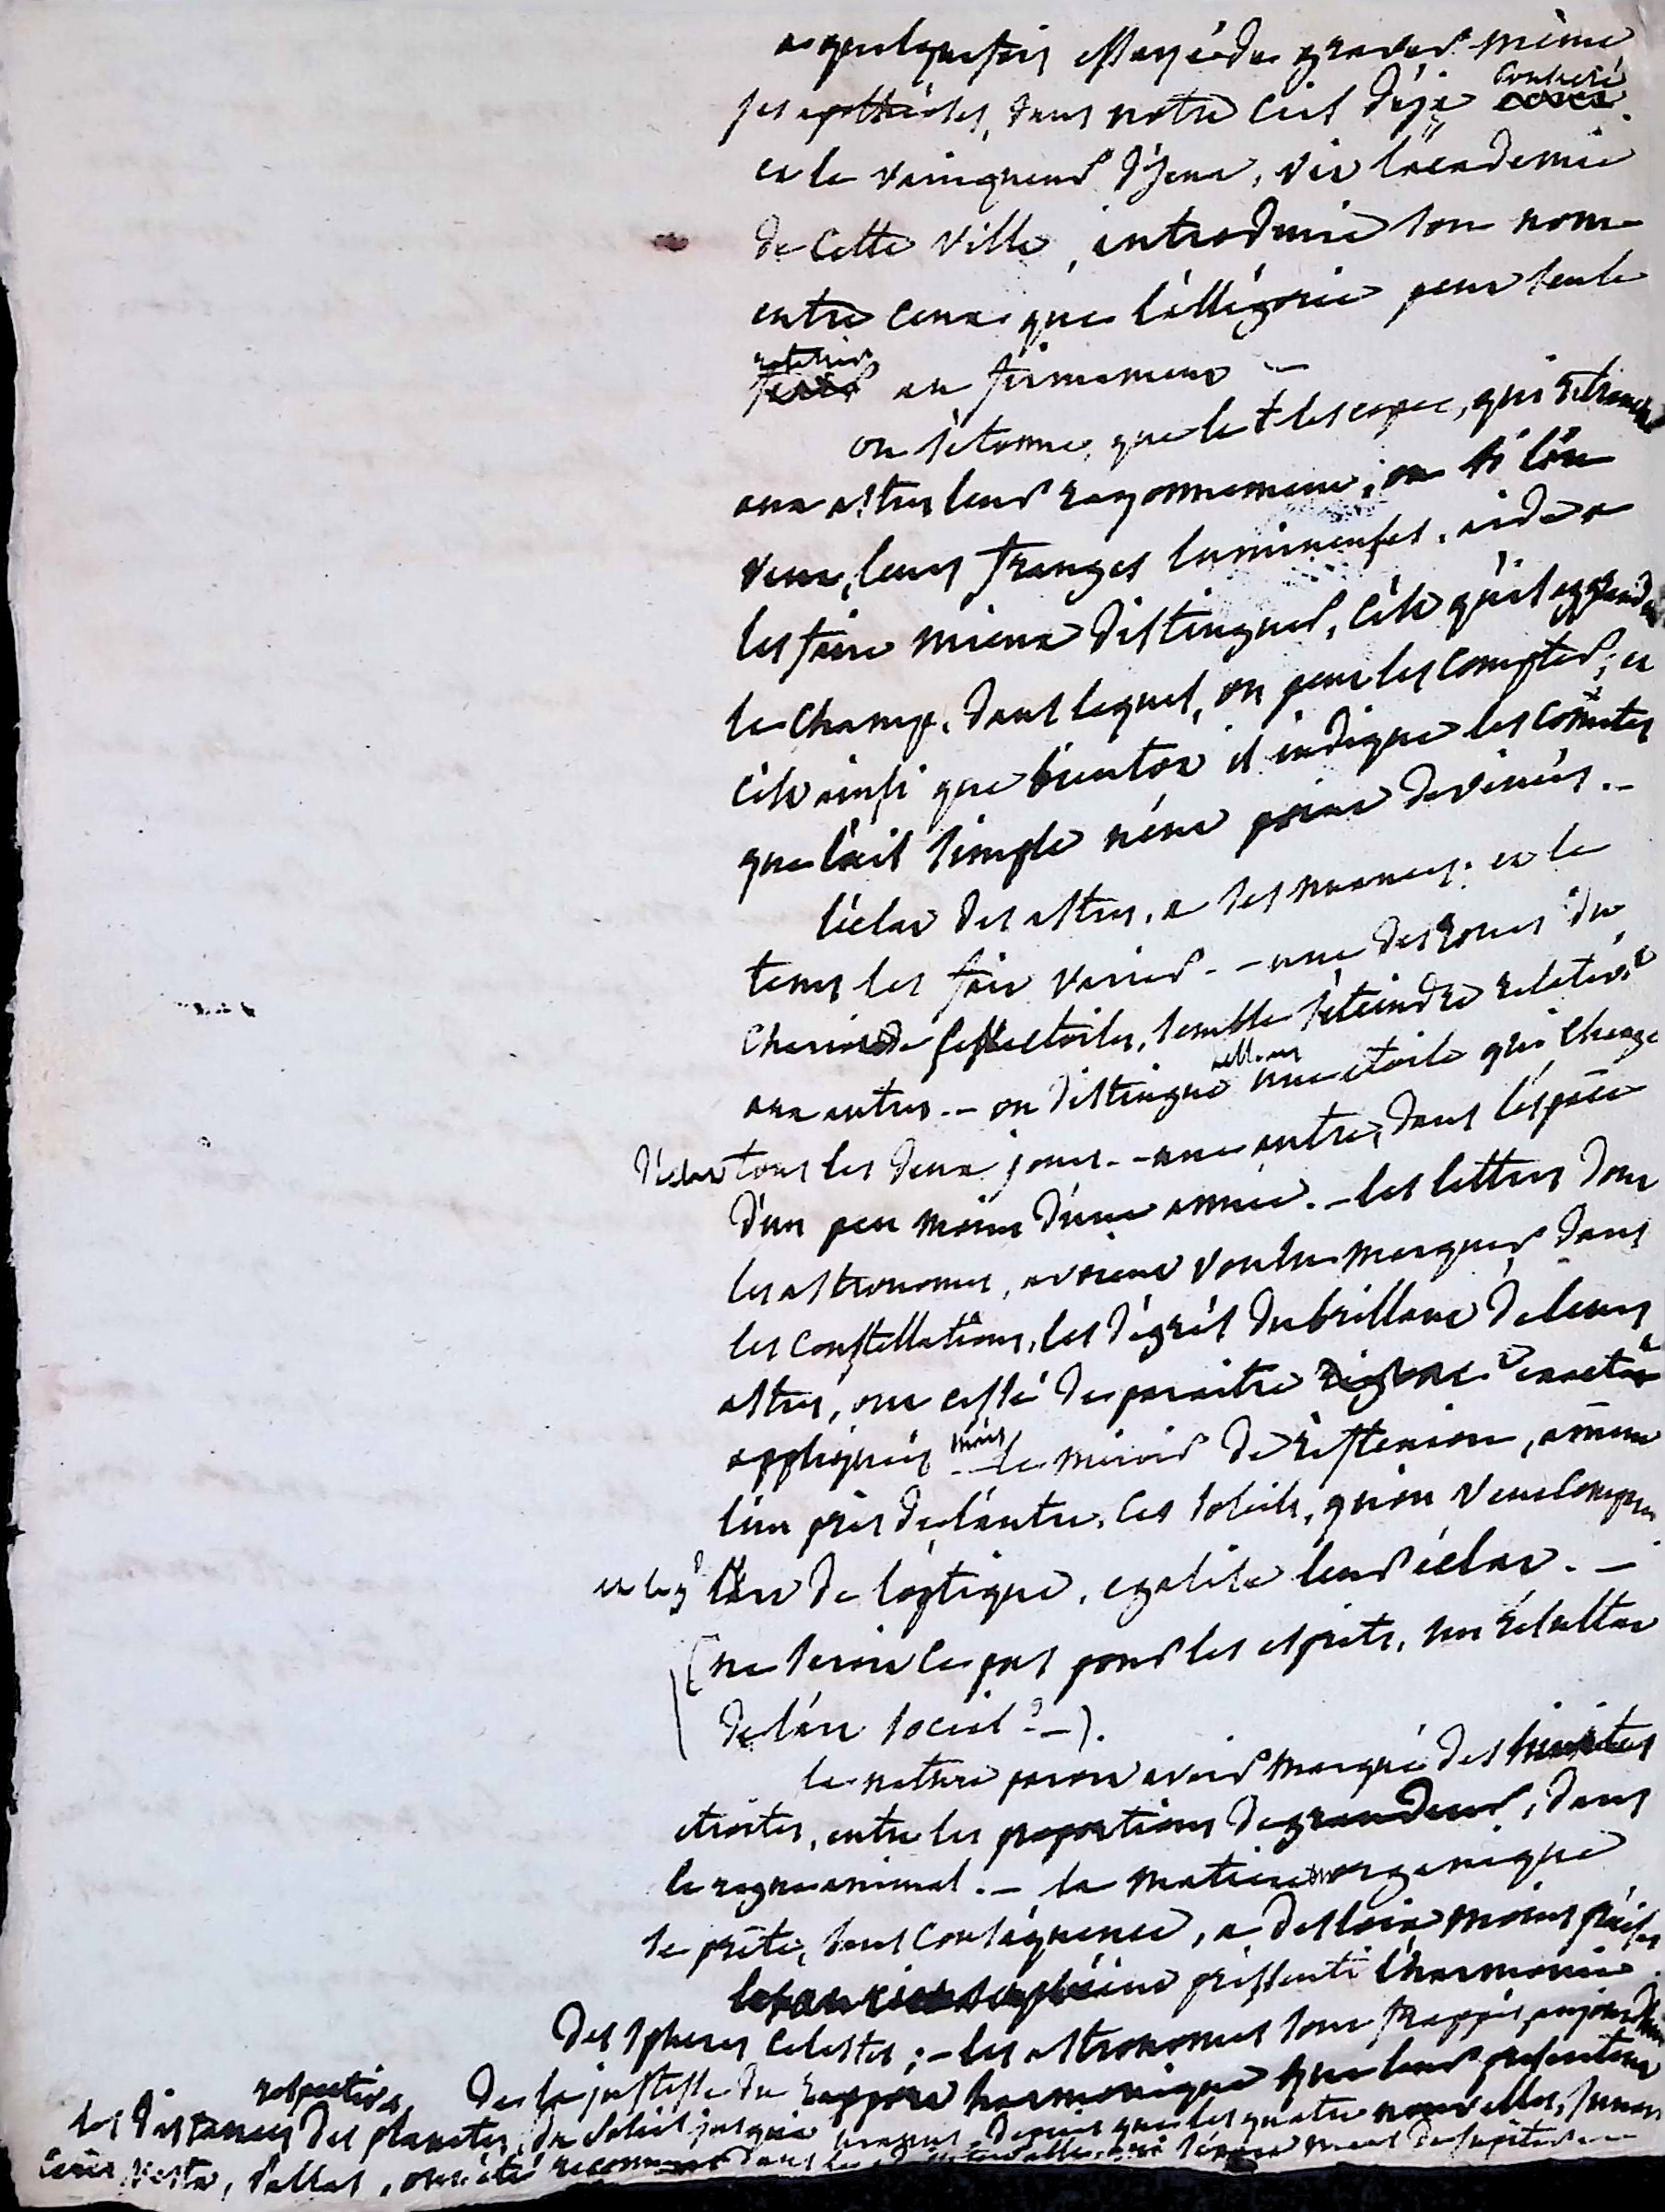 a quelquefois essayé de graver même
ses apothéoses, dans notre ciel déja consacré
et le vainqueur d'Jena, vit l'academie
de cette ville, introduire son nom
entre ceux que l'allégorie peut seule
au firmament –
on s'étonne, que le télescope, qui retranche
aux astres leur rayonnement, ou si l'on
veut, leurs franges lumineuses, aide a
les faire mieux distinguer, c'est qu'il aggrandit
le champ, dans lequel, on peut les compter; et
c'est ainsi que bientot il indique les comètes
que l'œil simple n'eut point devinées. –
l'éclat des astres, a ses nuances; et le
tems les fait varier. – une des roues du
chariot de sept etoiles, semble s'éteindre relativt
aux autres. – on distingue une etoile qui change
d'éclat tous les deux jours. – une autre, dans l'espace
d'un peu moins d'une année. – les lettres dont
les astronomes, avoient voulu marquer, dans
les constellations, les dégrés du brillant de leurs
astres, ont cessé de paroitre exactemt
appliqués mais le miroir de réflexion, amene
l'un près de l'autre, ces soleils, qu'on veut comparer
et l'art de l'optique, egalise leur éclat. –
(ne seroit ce pas pour les esprits, un résultat
de l'art social ? –).
la nature paroit avoir marqué des limites
etroites, entre les proportions de grandeur, dans
le regne animal. – la matiere inorganique
se prête, sans conséquence, a des loix moins précises
les anciens avoient pressenti l'harmonie
des spheres celestes; – les astronomes sont frappés aujourd'hui
de la justesse du rapport harmonique que leur présentent
les distances respectives des planetes, du soleil jusqu'à uranus, depuis que les quatre nouvelles, Junon
Cérès, Vesta, Pallas, ont été reconnues dans l'intervalle qui sépare mars de Jupiter